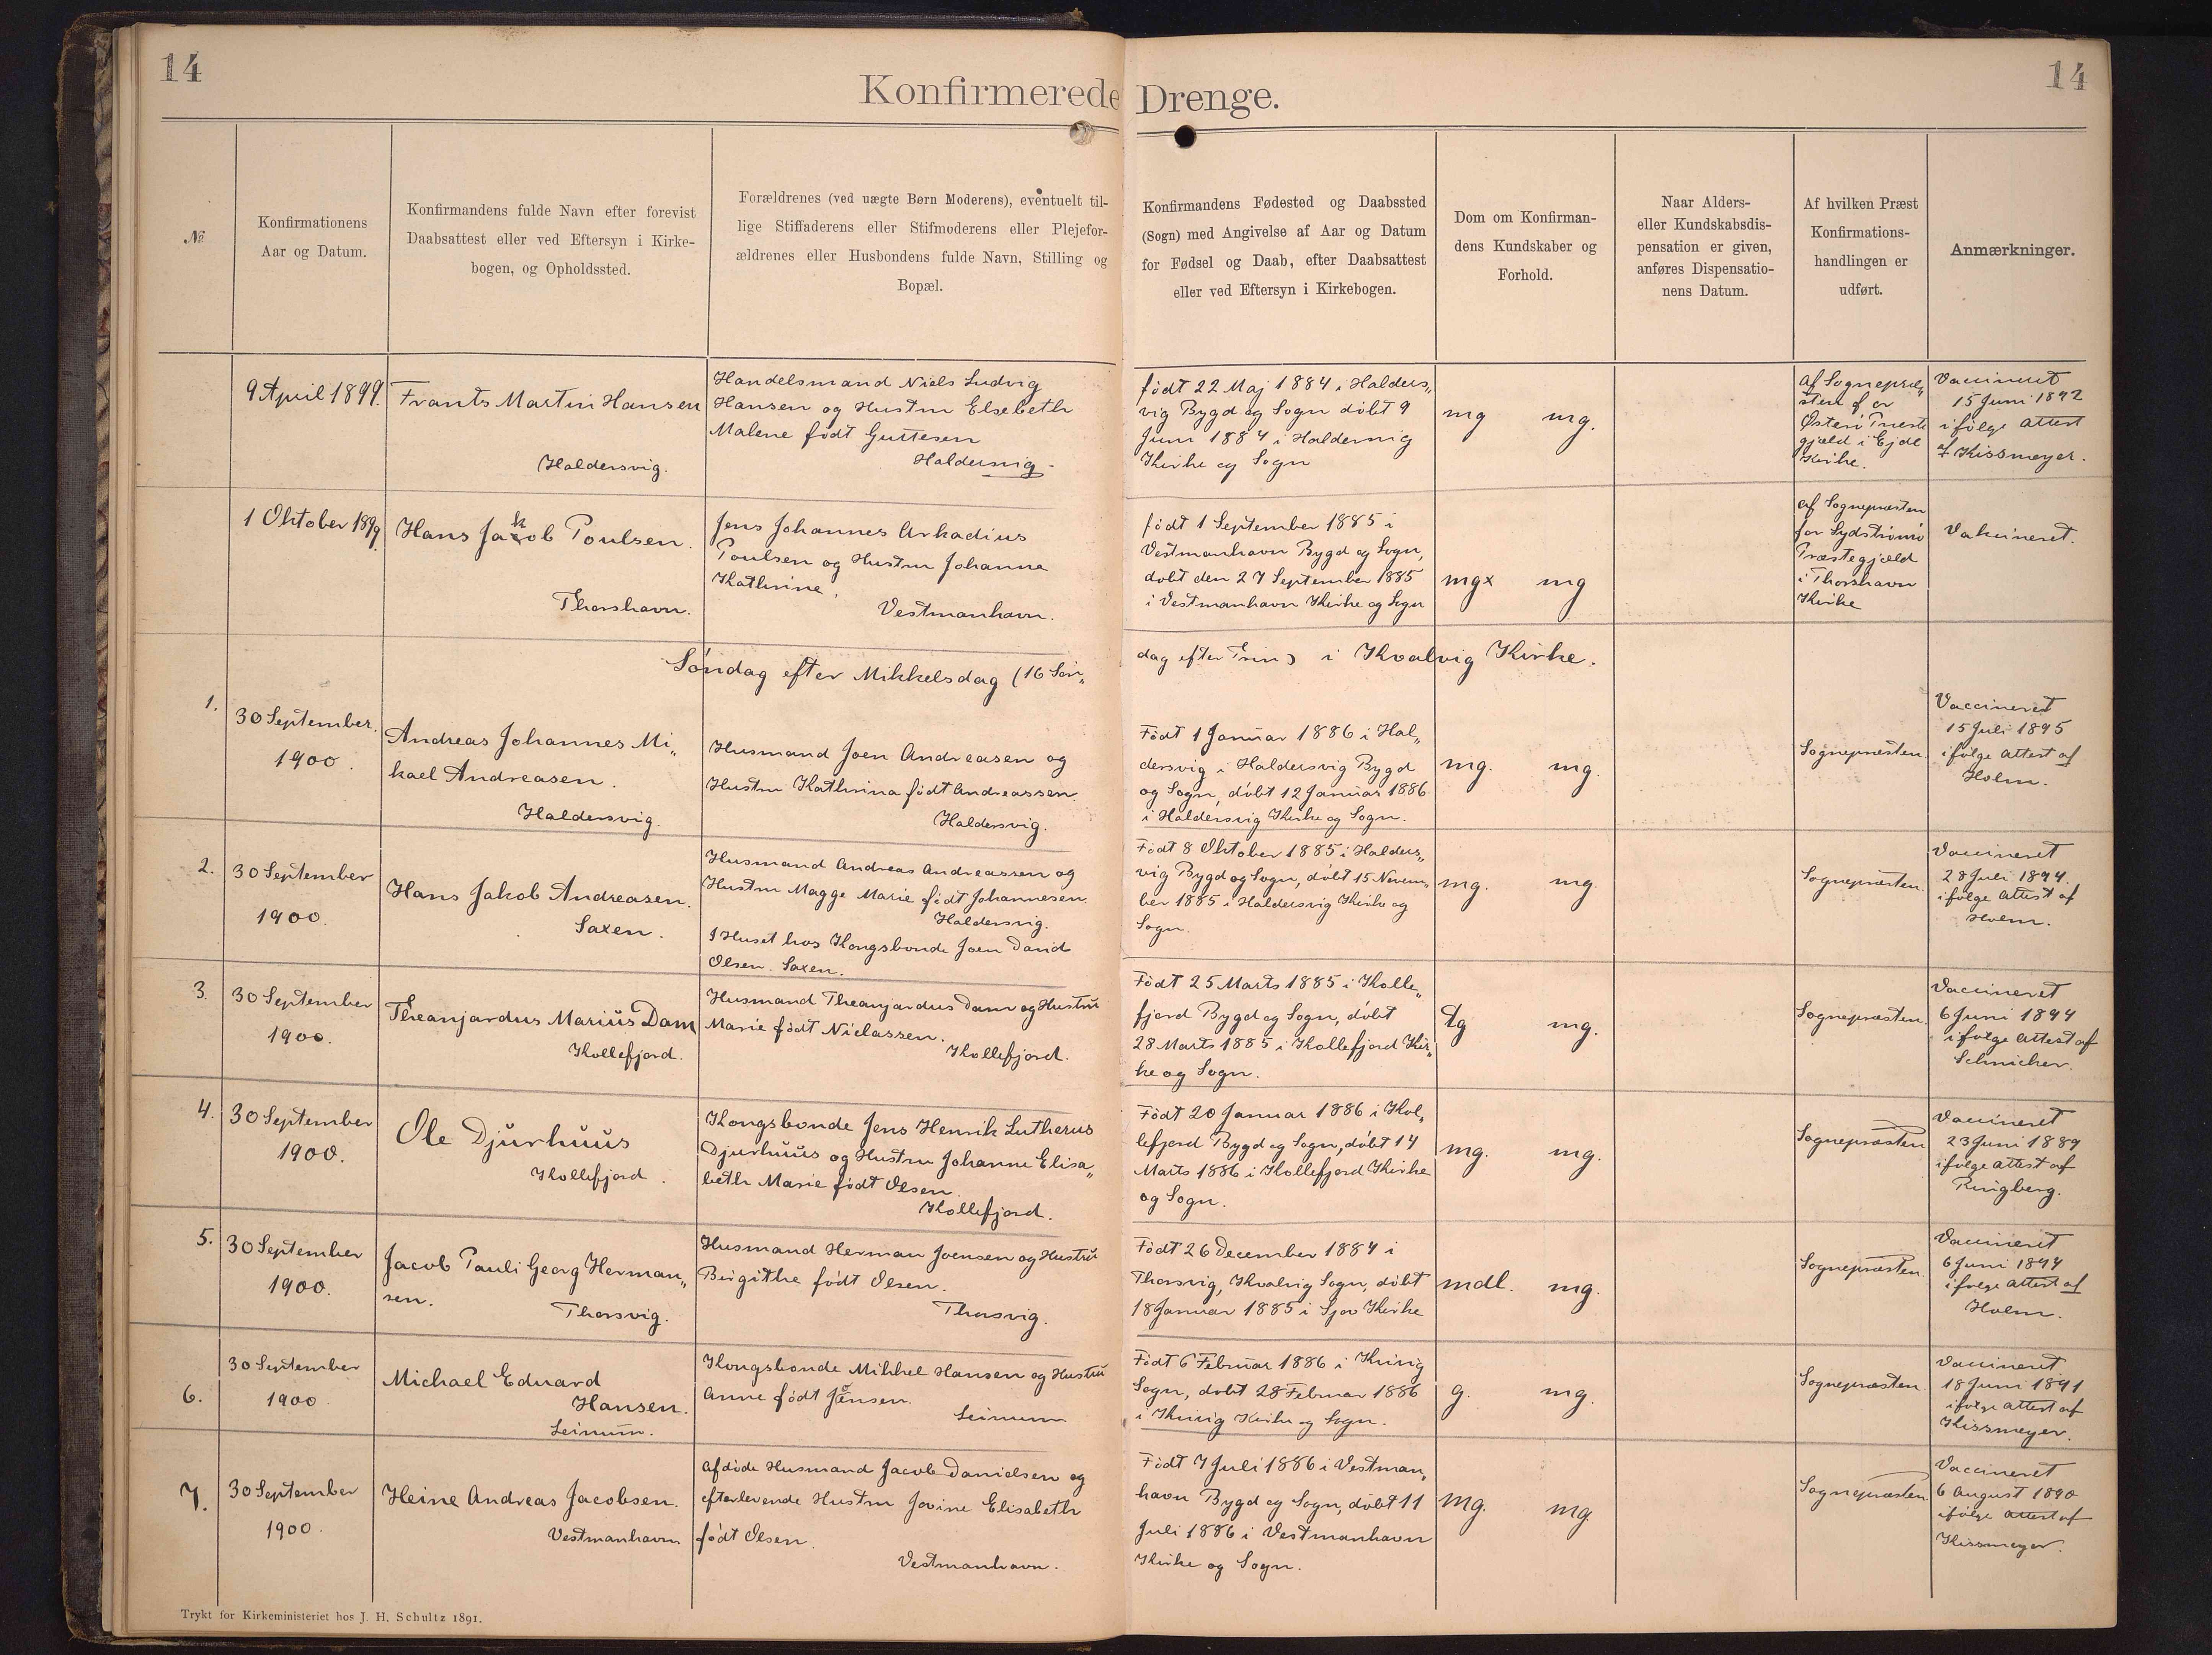 14
14
Konfirmerede Drenge.
№
Konfirmationens
Aar og Datum.
Konfirmandens fulde Navn efter forevist
Daabsattest eller ved Eftersyn i Kirke-
bogen, og Opholdssted.
Forældrenes (ved uægte Børn Moderens), eventuelt til-
lige Stiffaderens eller Stifmoderens eller Plejefor-
ældrenes eller Husbondens fulde Navn, Stilling og
Bopæl.
Konfirmandens Fødested og Daabssted
(Sogn) med Angivelse af Aar og Datum
for Fødsel og Daab, efter Daabsattest
eller ved Eftersyn i Kirkebogen.
Dom om Konfirman-
dens Kundskaber og
Forhold.
Naar Alders-
eller Kundskabsdis-
pensation er given,
anføres Dispensatio-
nens Datum.
Af hvilken Præst
Konfirmations-
handlingen er
udført.
Anmærkninger.
9 April 1899.
Frants Martin Hansen
Haldersvig.
Handelsmand Niels Ludvig
Hansen og Hustru Elsebeth
Malene født Guttesen
Haldersvig.
født 22 Maj 1884 i Halders„
vig Bygd og Sogn døbt 9
Juni 1884 i Haldersvig
Kirke og Sogn
mg mg.
af Sognepræ„
sten for
Østerø Præste
gjæld i Ejde
Kirke.
Vaccineret
15 Juni 1892
ifølge attest
af Kissmeyer.
1 Oktober 1899.
Hans Jakob Poulsen.
Thorshavn.
Jens Johannes Arkadius
Poulsen og Hustru Johanne
Kathrine.
Vestmanhavn.
født 1 September 1885 i
Vestmanhavn Bygd og Sogn,
døbt den 27 September 1885
i Vestmanhavn Kirke og Sogn
mgx mg
af Sognepræsten
for Sydstrømø
Præstegjæld
i Thorshavn
Kirke
Vakcineret.
Søndag efter Mikkelsdag (16 Søn„
dag efter Trin) i Kvalvig Kirke.
1.
30 September.
1900.
Andreas Johannes Mi„
kael Andreasen.
Haldersvig.
Husmand Joen Andreasen og
Hustru Kathrina født Andreassen.
Haldersvig.
Født 1 Januar 1886 i Hal„
dersvig i Haldersvig Bygd
og Sogn, døbt 12 Januar 1886
i Haldersvig Kirke og Sogn.
mg. mg.
Sognepræsten.
Vaccineret
15 Juli 1895
ifølge attest af
Holm.
2.
30 September
1900.
Hans Jakob Andreasen.
Saxen.
Husmand Andreas Andreassen og
Hustru Magge Marie født Johannesen.
Haldersvig.
I Huset hos Kongsbonde Joen David
Olsen. Saxen.
Født 8 Oktober 1885 i Halders„
vig Bygd og Sogn, døbt 15 Novem„
ber 1885 i Haldersvig Kirke og
Sogn.
mg. mg.
Sognepræsten.
Vaccineret
28 Juli 1894.
ifølge attest af
Holm.
3.
30 September
1900.
Theanjardus Marius Dam
Kollefjord.
Husmand Theanjardus Dam og Hustru
Marie født Niclassen.
Kollefjord.
Født 25 Marts 1885 i Kolle„
fjord Bygd og Sogn, døbt
28 Marts 1885 i Kollefjord Kir„
ke og Sogn.
tg mg.
Sognepræsten.
Vaccineret
6 Juni 1894
ifølge attest af
4.
30 September
1900.
Ole Djurhuus
Kollefjord.
Kongsbonde Jens Henrik Lutherus
Djurhuus og Hustru Johanne Elisa„
beth Marie født Olsen.
Kollefjord.
Født 20 Januar 1886 i Kol„
lefjord Bygd og Sogn, døbt 14
Marts 1886 i Kollefjord Kirke
og Sogn.
mg. mg.
Sognepræsten
Vaccineret
23 Juni 1889
ifølge attest af
Ringberg.
5.
30 September
1900.
Jacob Pauli Georg Herman„
sen.
Thorsvig.
Husmand Herman Joensen og Hustru
Birgithe født Olsen.
Thorsvig.
Født 26 December 1884 i
Thorsvig, Kvalvig Sogn, døbt
18 Januar 1885 i Sjov Kirke
mdl. mg.
Sognepræsten.
Vaccineret
6 Juni 1894
ifølge attest af
Holm.
6.
30 September
1900
Michael Eduard
Hansen.
Leinum.
Kongsbonde Mikkel Hansen og Hustru
Anne født Jensen.
Leinum
Født 6 Februar 1886 i Kvivig
Sogn, døbt 28 Februar 1886
i Kvivig Kirke og Sogn.
g. mg.
Sognepræsten
Vaccineret
18 Juni 1891
ifølge attest af
Kissmeyer.
7.
30 September
1900.
Heine Andreas Jacobsen.
Vestmanhavn
Afdøde Husmand Jacob Danielsen og
efterlevende Hustru Jovine Elisabeth
født Olsen.
Vestmanhavn.
Født 7 Juli 1886 i Vestman„
havn Bygd og Sogn, døbt 11
Juli 1886 i Vestmanhavn
Kirke og Sogn.
mg. mg.
Sognepræsten
Vaccineret
6 August 1890
ifølge attest af
Kissmeyer.
Trykt for Kirkeministeriet hos J. H. Schultz 1891.